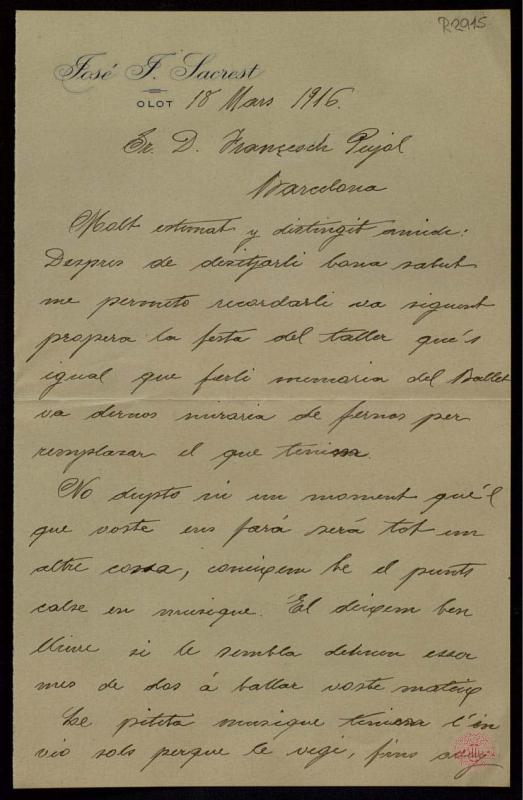 R2915
José F. Sacrest
OLOT 18 Mars 1916.
Sr. D. Françesch Pujol
Barcelona
Molt estimat y distingit amich:
Despres de desitjarli bona salut
me permeto recordarli va siguent
propera la festa del taller qué's
igual que ferli memoria del Ballet
va dirnos miraria de fernos per
remplasar el que teniem.
No dupto ni un moment qué'l
que voste ens fará será tot un
altre cossa, coneixem be el punts
calse en musique. El deixem ben
lliure si le sembla debuen esser
mes de dos á ballar voste mateix
Le petita musique teniem l'en
vio sols perque le vegi, fins